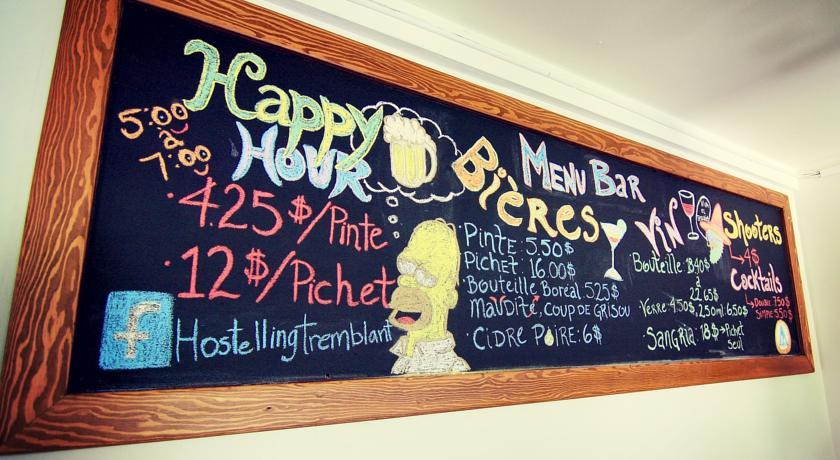 Happy
Hour
5:00
à
7:00
·4.25$/Pinte
·12$/Pichet
f Hostellingtremblant
Menu Bar
Bières
·Pinte: 5.50$
Pichet: 16.00$
Bouteille Boréal: 5.25$
Maudite, coup de Grisou
·Cidre Poire: 6$
Vin
Bouteille: 18.40$
à
22.65$
·Verre: 4.50$, 250ml: 6.50$
·Sangria: 18$→Pichet
Seul
Shooters
→4$
Cocktails
→Double: 7.50$
Simple: 5.50$